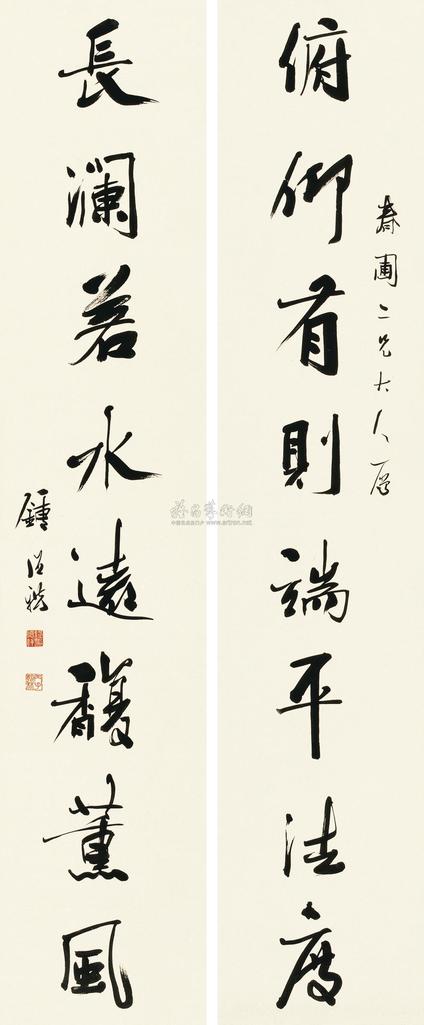 春圃二兄大人屬
俯仰有則端平法度
長瀾若水遠馥薰風
鍾
雅昌藝術網
www.artron.net